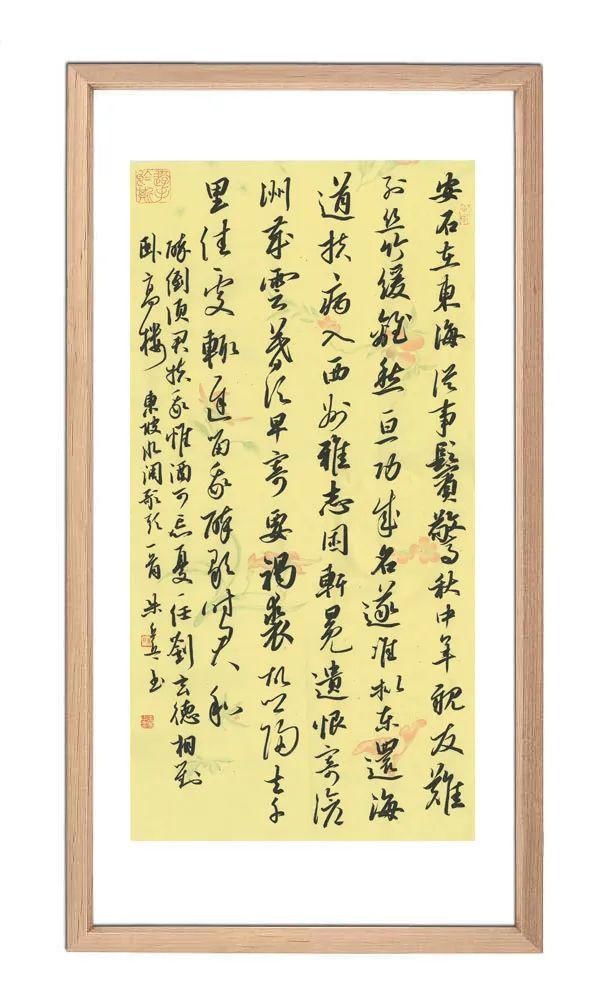 安石在東海從事鬢驚秋中年親友難
別絲竹緩離愁一旦功成名遂准擬東還海
道扶病入西州雅志困軒冕遺恨寄滄
洲歲雲暮須早寄要褐裘故鄉歸去千
里佳處輒遲留我醉歌時君和
醉倒須君扶我惟酒可忘憂一任劉玄德相對
臥高樓 東坡水調歌頭一首 書